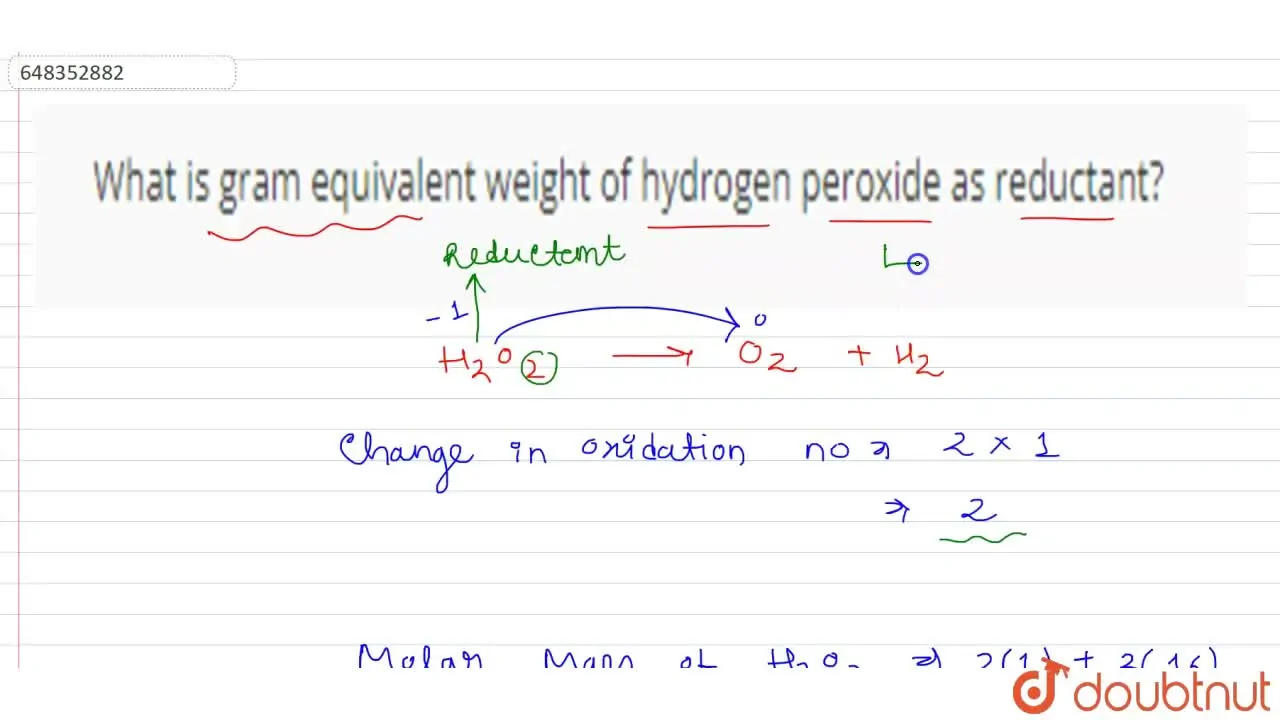 648352882
What is gram equivalent weight of hydrogen peroxide as reductant?
Reductant
-1 0
H2O2 → O2 + H2
Change in oxidation no ⇒ 2 × 1
⇒ 2
Molar Mass of H2O2 ⇒ 2(1) + 2(16)
doubtnut